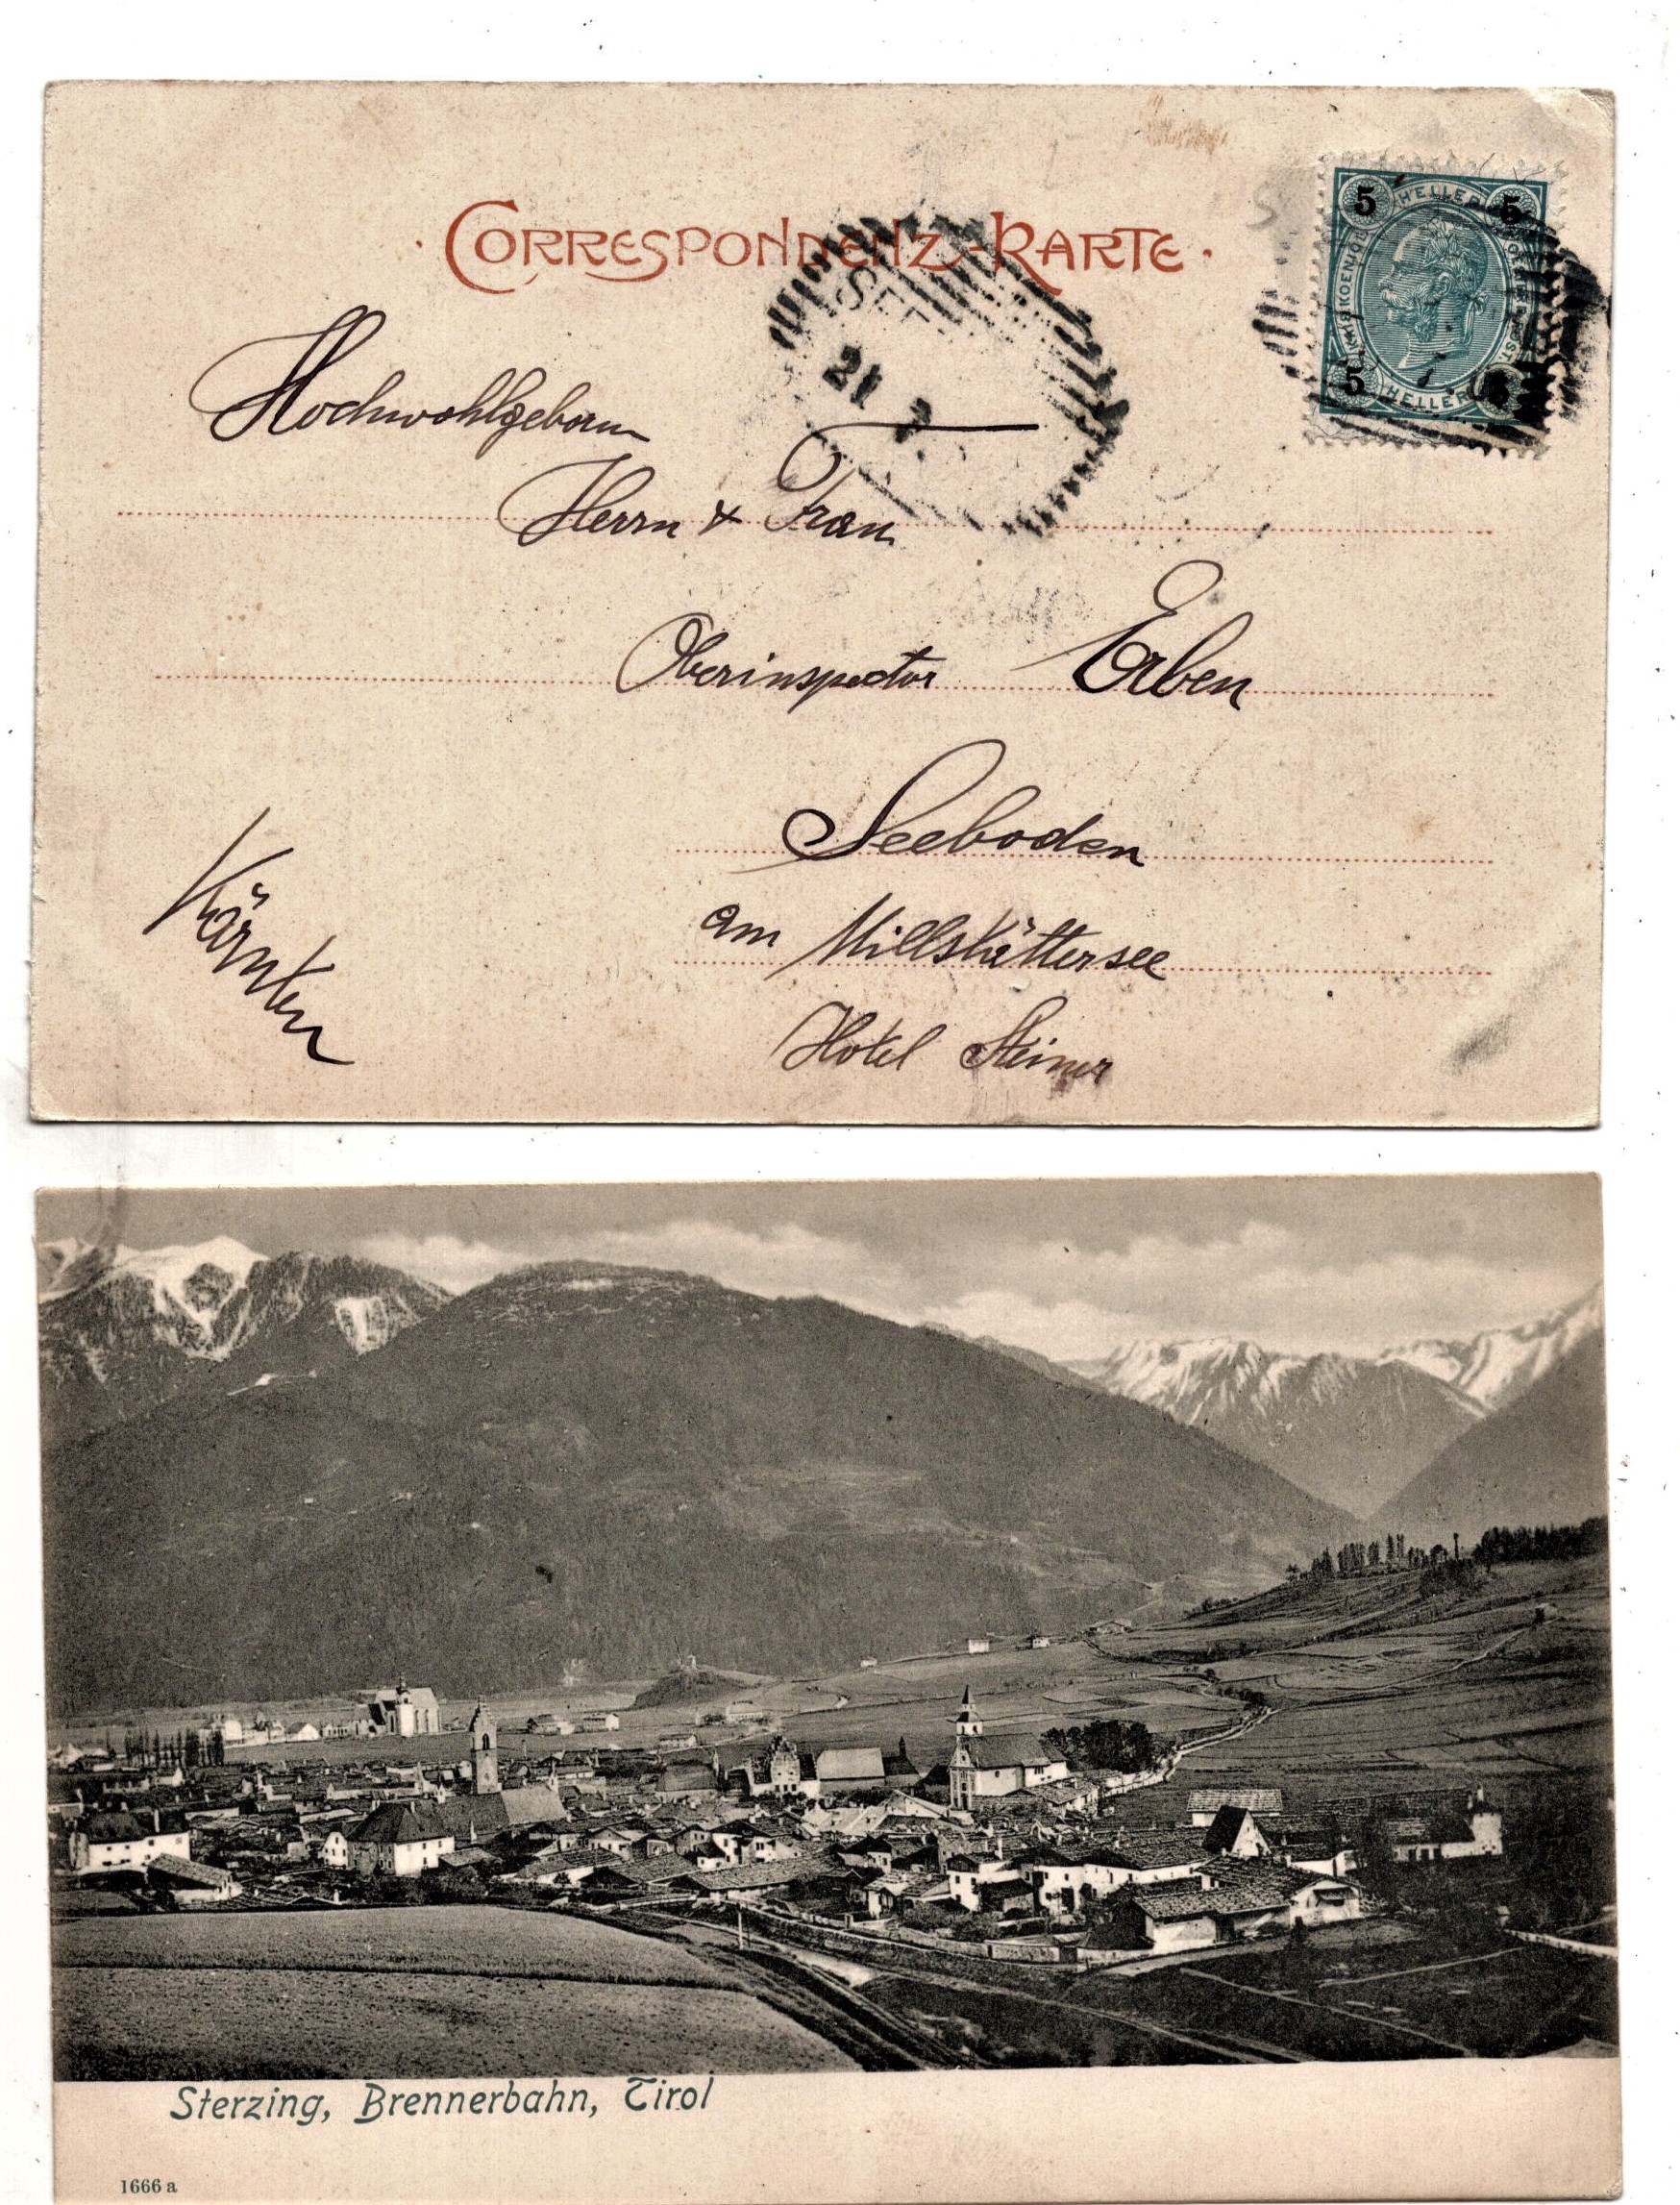 CORRESPONDENZ-KARTE
5 HELLER 5
KAIS. KOENIGL.
5 HELLER
SEE
21
Hochwohlgeborn
Herrn & Frau
Oberinspector Erben
Seeboden
am Millstättersee
Hotel Steiner
Kärnten
Sterzing, Brennerbahn, Tirol
1666 a